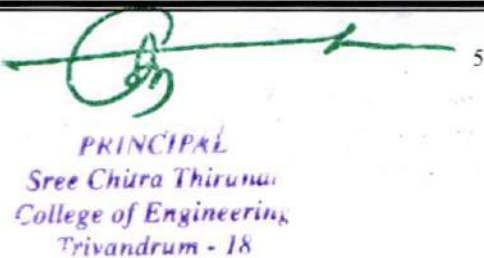 5
PRINCIPAL
Sree Chitra Thirunal
College of Engineering
Trivandrum - 18